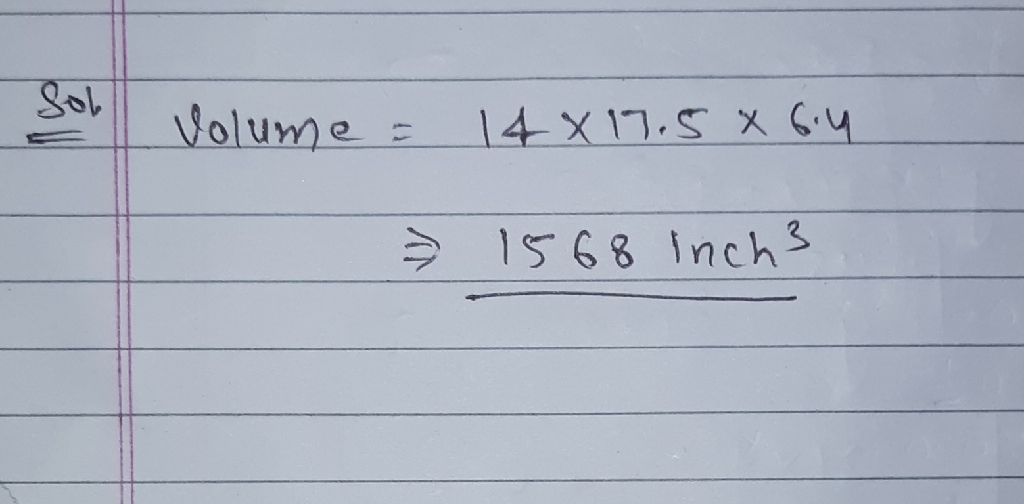 Sol
Volume = 14 × 17.5 × 6.4
⇒ 1568 Inch³